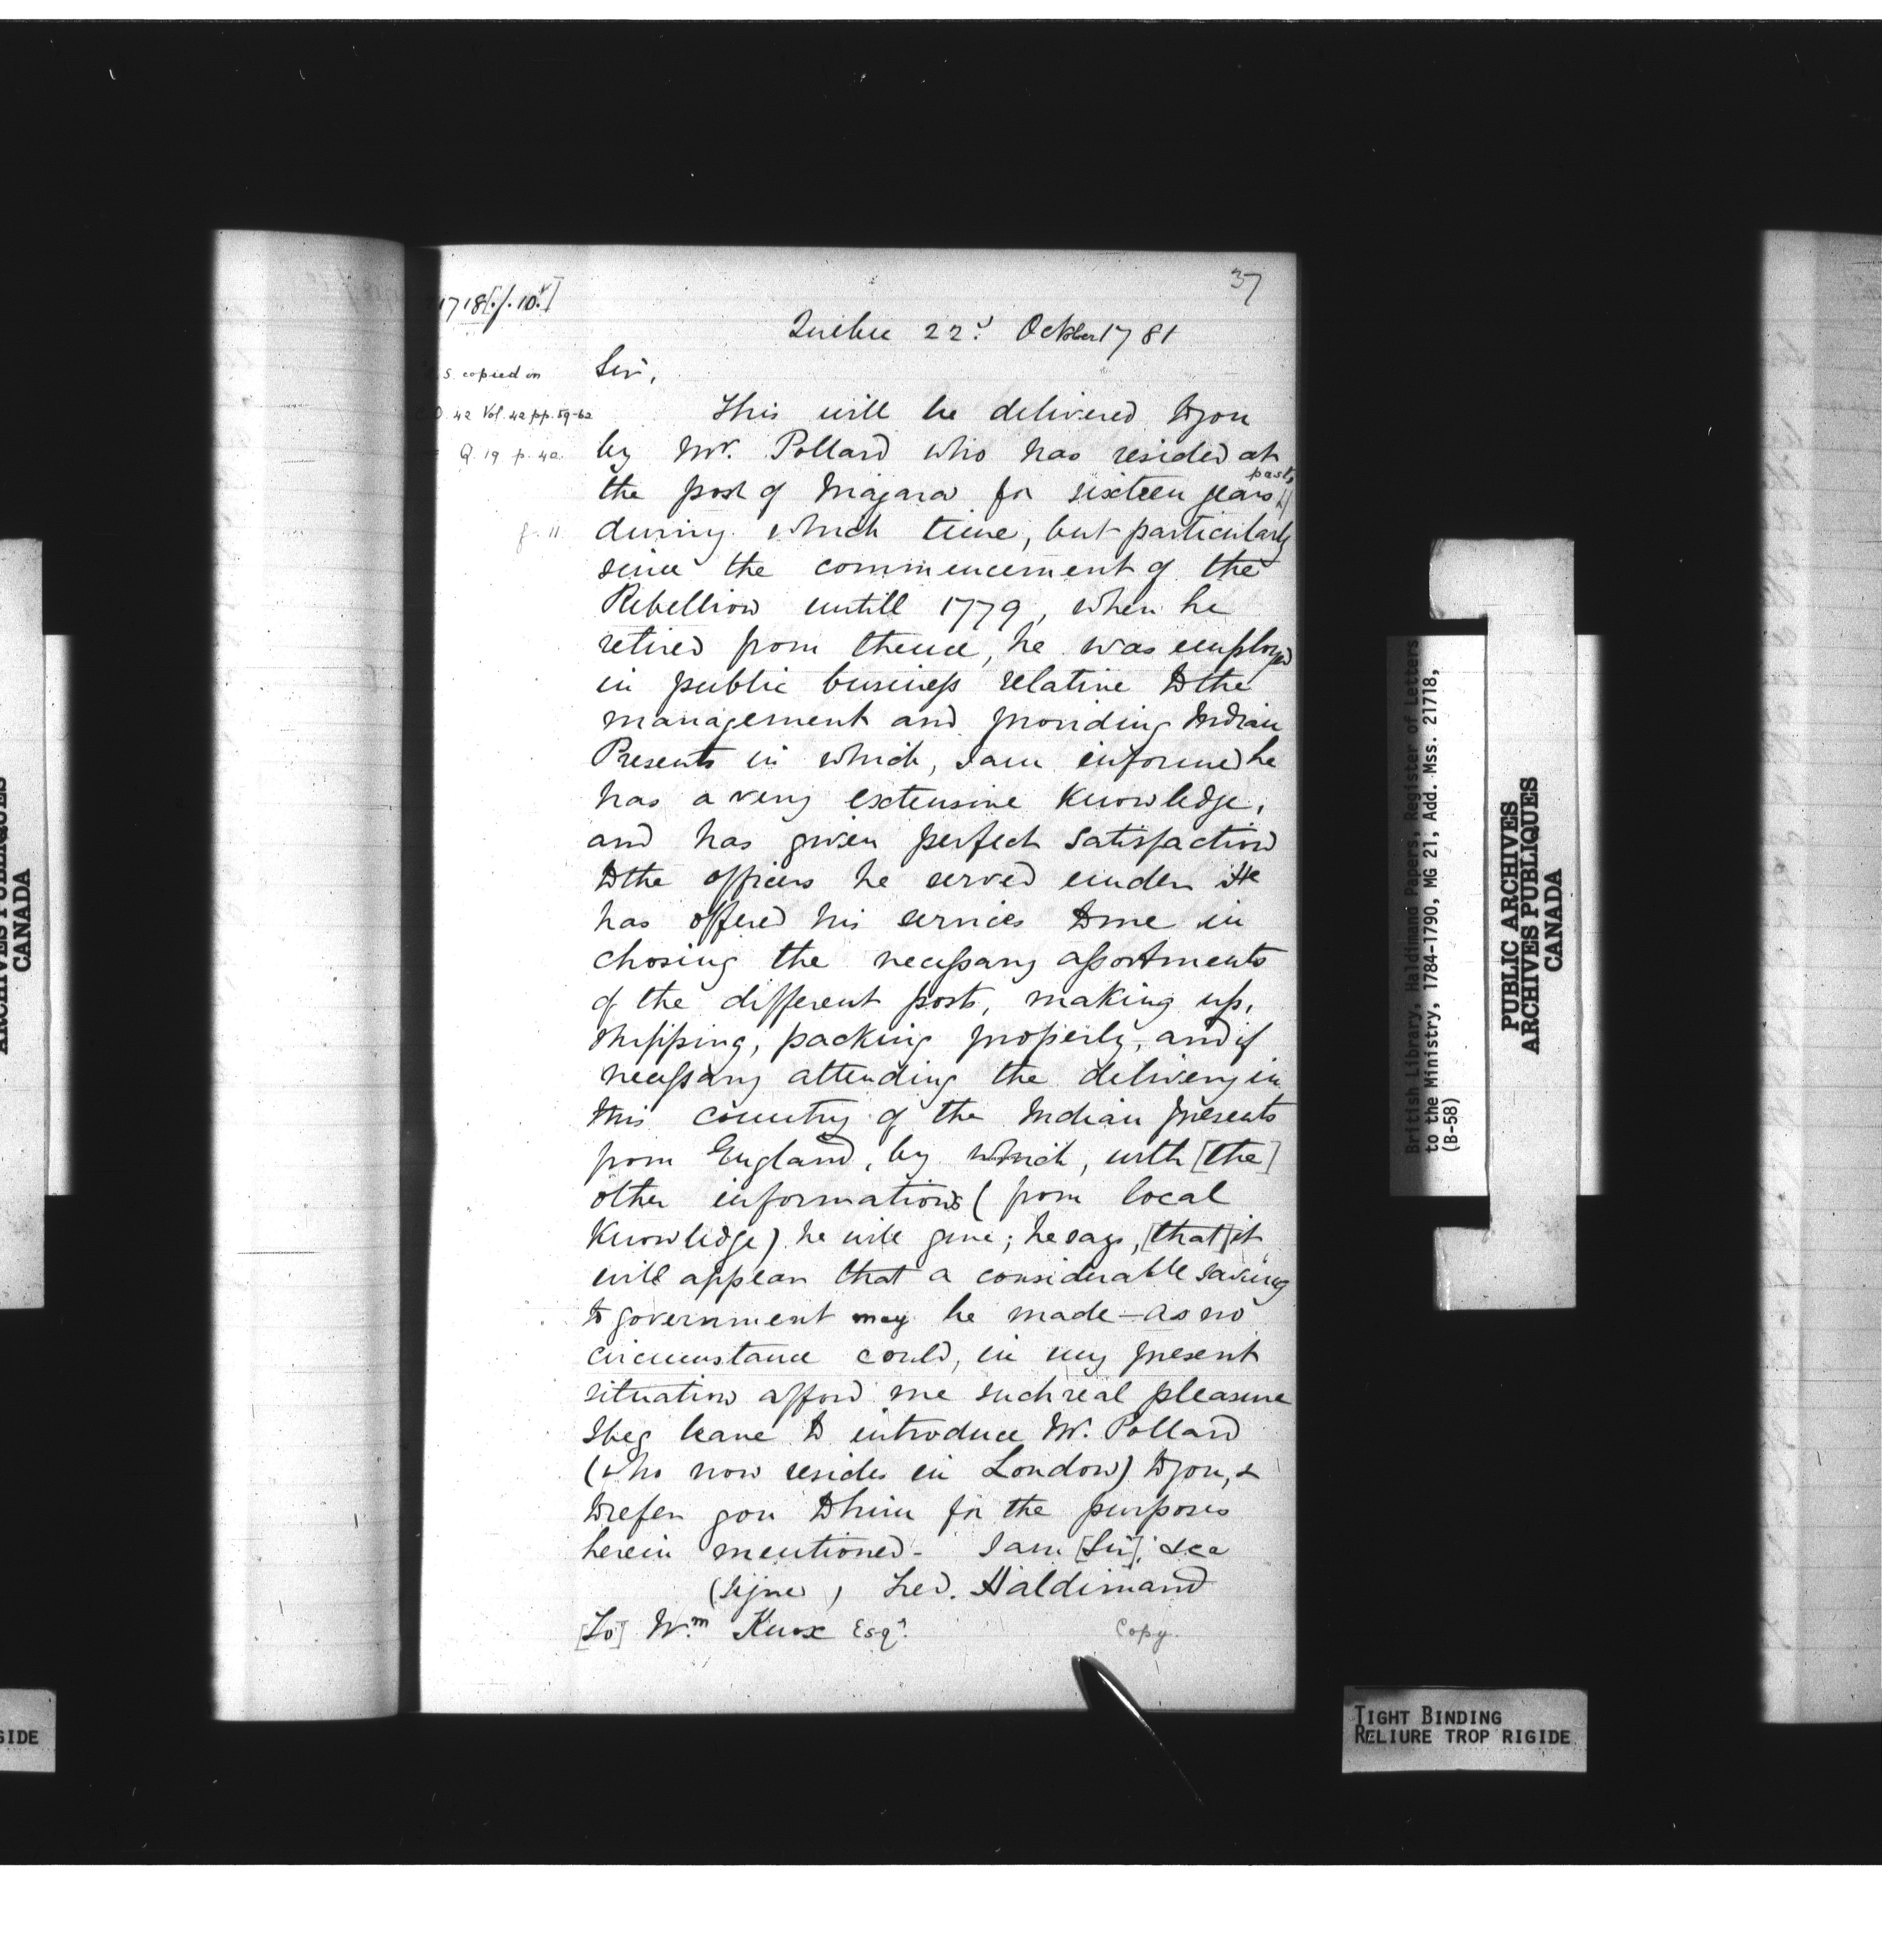 37
1718[f. 10v]
Quebec 22d October 1781
S. copied in
Sir,
O. 42 Vol. 42 pp. 59-62
This will be delivered to you
Q. 19 p. 40.
by Mr. Pollard who has resided at
the post of Niagara for sixteen years past,
f. 11.
during which time, but particularly
since the commencement of the
Rebellion untill 1779, when he
retired from thence, he was employed
in public business relative to the
management and providing Indian
Presents in which, I am informed he
has a very extensive Knowledge,
and has given perfect satisfaction
to the officers he served under He
has offered his services to me in
chosing the necessary assortments
of the different posts, making up,
shipping, packing properly, and if
necessary attending the delivery in
this country of the Indian presents
from England, by which, with [the]
other informations (from local
Knowledge) he will give; he says, [that] it
will appear that a considerable saving
to government may be made — as no
circumstance could, in my present
situation afford me such real pleasure
I beg leave to introduce Mr. Pollard
(who now resides in London) to you, &
to refer you to him for the purposes
herein mentioned - I am [Sir], &ca
(signed) Fred. Haldimand
[To] Wm Knox Esqr.
Copy.
British Library, Haldimand Papers, Register of Letters
to the Ministry, 1784-1790, MG 21, Add. Mss. 21718,
(B-58)
PUBLIC ARCHIVES
ARCHIVES PUBLIQUES
CANADA
TIGHT BINDING
RELIURE TROP RIGIDE
ARCHIVES PUBLIQUES
CANADA
GIDE